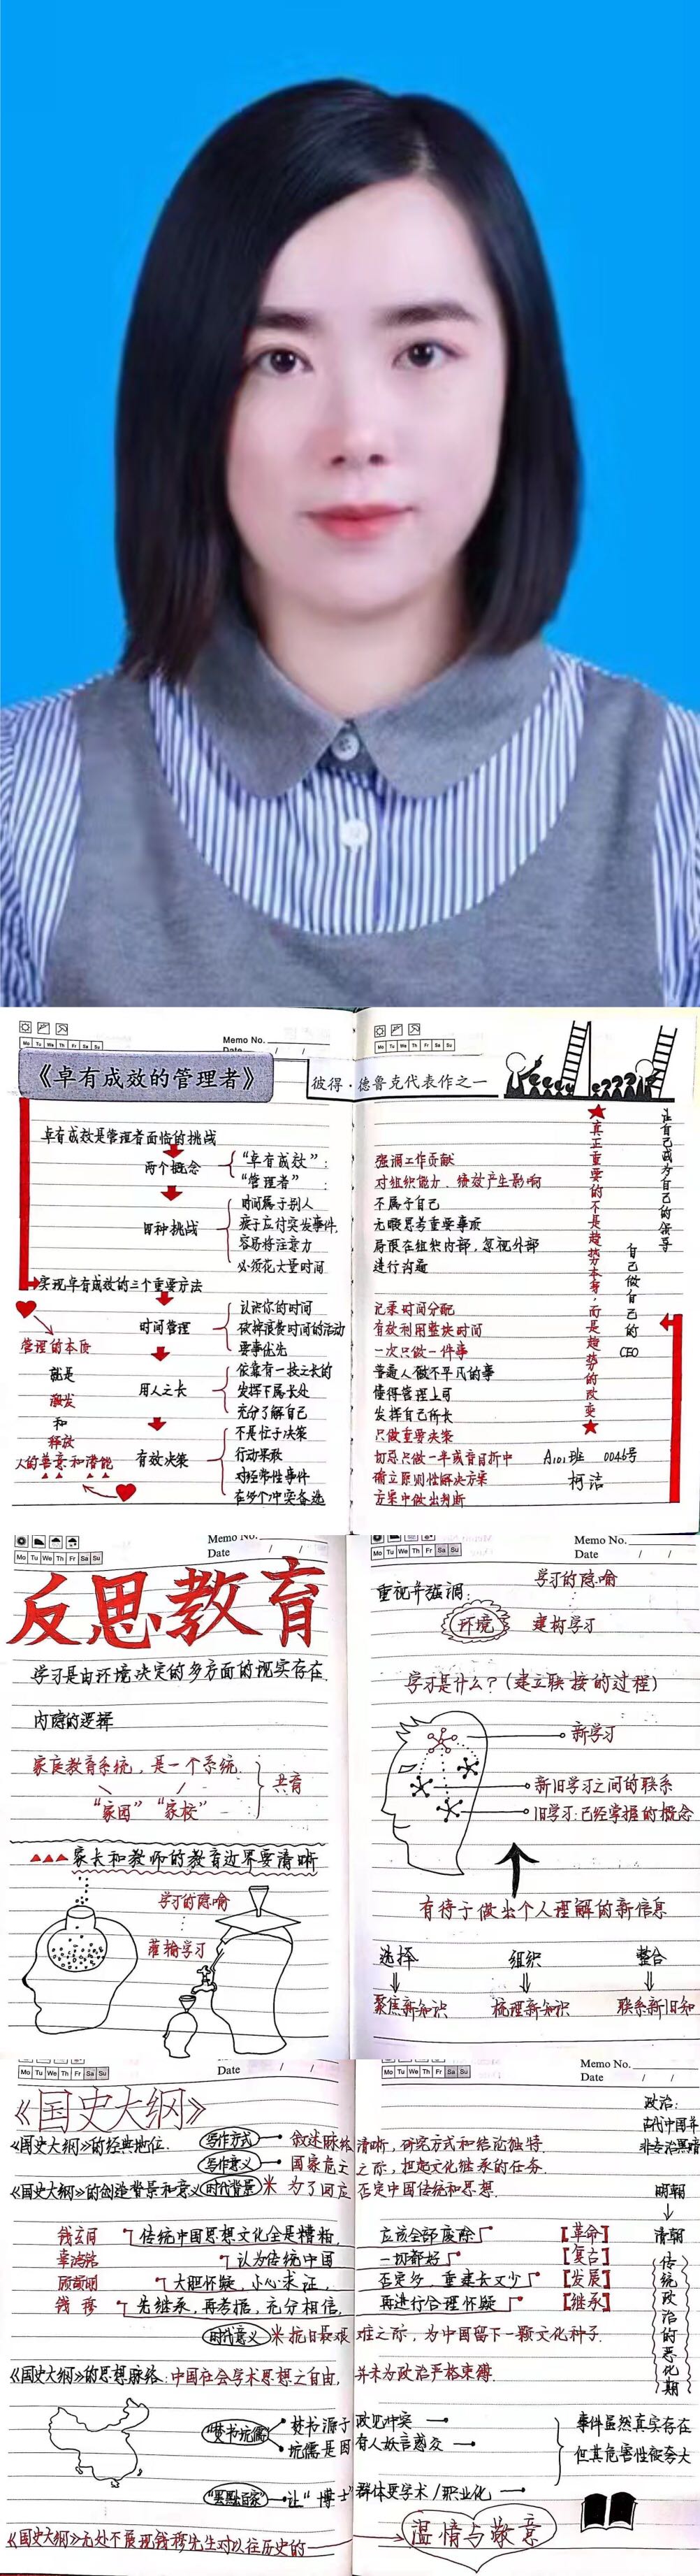 Memo No.
Date / /
Mo Tu We Th Fr Sa Su
Mo Tu We Th Fr Sa Su
《卓有成效的管理者》
彼得·德鲁克代表作之一
卓有成效是管理者面临的挑战
两个概念
“卓有成效”：
强调工作贡献
“管理者”：
对组织能力、绩效产生影响
四种挑战
时间属于别人
不属于自己
疲于应付突发事件,
无暇思考重要事项
容易将注意力
局限在组织内部,忽视外部
必须花大量时间
进行沟通
实现卓有成效的三个重要方法
时间管理
认识你的时间
记录时间分配
砍掉浪费时间的活动
有效利用整块时间
要事优先
一次只做一件事
用人之长
依靠有一技之长的
普通人做不平凡的事
发挥下属长处
懂得管理上司
充分了解自己
发挥自己所长
有效决策
不是忙于决策
只做重要决策
行动果敢
切忌只做一半或盲目折中
对经常性事件
确立原则性解决方案
在多个冲突备选
方案中做出判断
管理的本质
就是
激发
和
释放
人的善意和潜能
真正重要的不是趋势本身,而是趋势的改变
让自己成为自己的领导
自己做自己的CEO
A101班 0046号
柯洁
Memo No.
Date / /
Mo Tu We Th Fr Sa Su
反思教育
学习是由环境决定的多方面的现实存在.
内隐的逻辑
家庭教育系统,是一个系统.
“家园” “家校”
共育
家长和教师的教育边界要清晰
学习的隐喻
灌输学习
Memo No.
Date / /
Mo Tu We Th Fr Sa Su
重视并强调:
学习的隐喻
环境
建构学习
学习是什么?(建立联接的过程)
新学习
新旧学习之间的联系
旧学习:已经掌握的概念
有待于做出个人理解的新信息
选择 组织 整合
聚焦新知识 梳理新知识 联系新旧知
Date / /
Mo Tu We Th Fr Sa Su
Memo No.
Date / /
Mo Tu We Th Fr Sa Su
《国史大纲》
《国史大纲》的经典地位.
写作方式
叙述脉络清晰,研究方式和结论独特.
写作意义
国家危亡之际,担起文化继承的任务.
《国史大纲》的创造背景和意义
时代背景
为了回应否定中国传统和思想.
钱玄同 传统中国思想文化全是糟粕,应该全部废除 【革命】
辜鸿铭 认为传统中国一切都好 【复古】
顾颉刚 大胆怀疑,小心求证,否定多,重建长又少 【发展】
钱穆 先继承,再考据,充分相信,再进行合理怀疑 【继承】
时代意义
抗日最艰难之际,为中国留下一颗文化种子.
《国史大纲》的思想脉络:中国社会学术思想之自由,并未为政治严格束缚.
“焚书坑儒”
焚书源于政见冲突
坑儒是因有人妖言惑众
事件虽然真实存在
但其危害性被夸大
让“博士”群体更学术/职业化
《国史大纲》无处不展现钱穆先生对以往历史的
温情与敬意
政治:
古代中国并
非专治黑暗
明朝
清朝
传统政治的恶化期